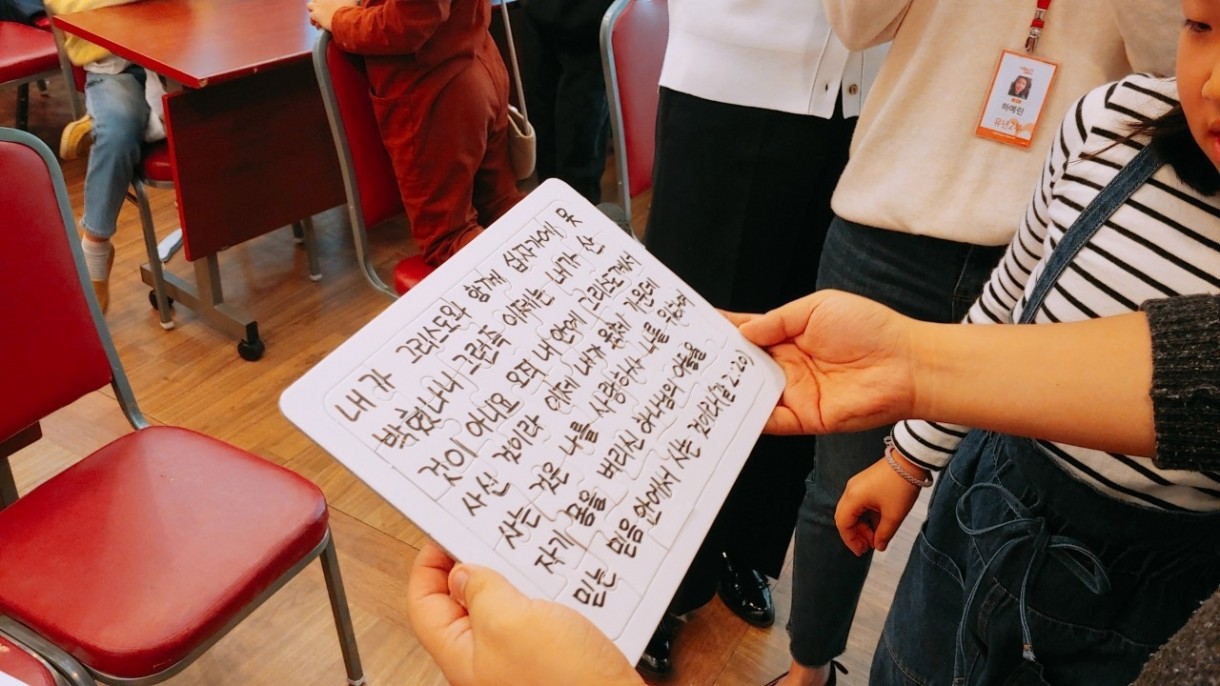 내가 그리스도와 함께 십자가에 못
박혔나니 그런즉 이제는 내가 산
것이 아니요 오직 내 안에 그리스도께서
사신 것이라 이제 내가 육체 가운데
사는 것은 나를 사랑하사 나를 위하여
자기 몸을 버리신 하나님의 아들을
믿는 믿음 안에서 사는 것이라(갈2:20)
하예린
유년2부